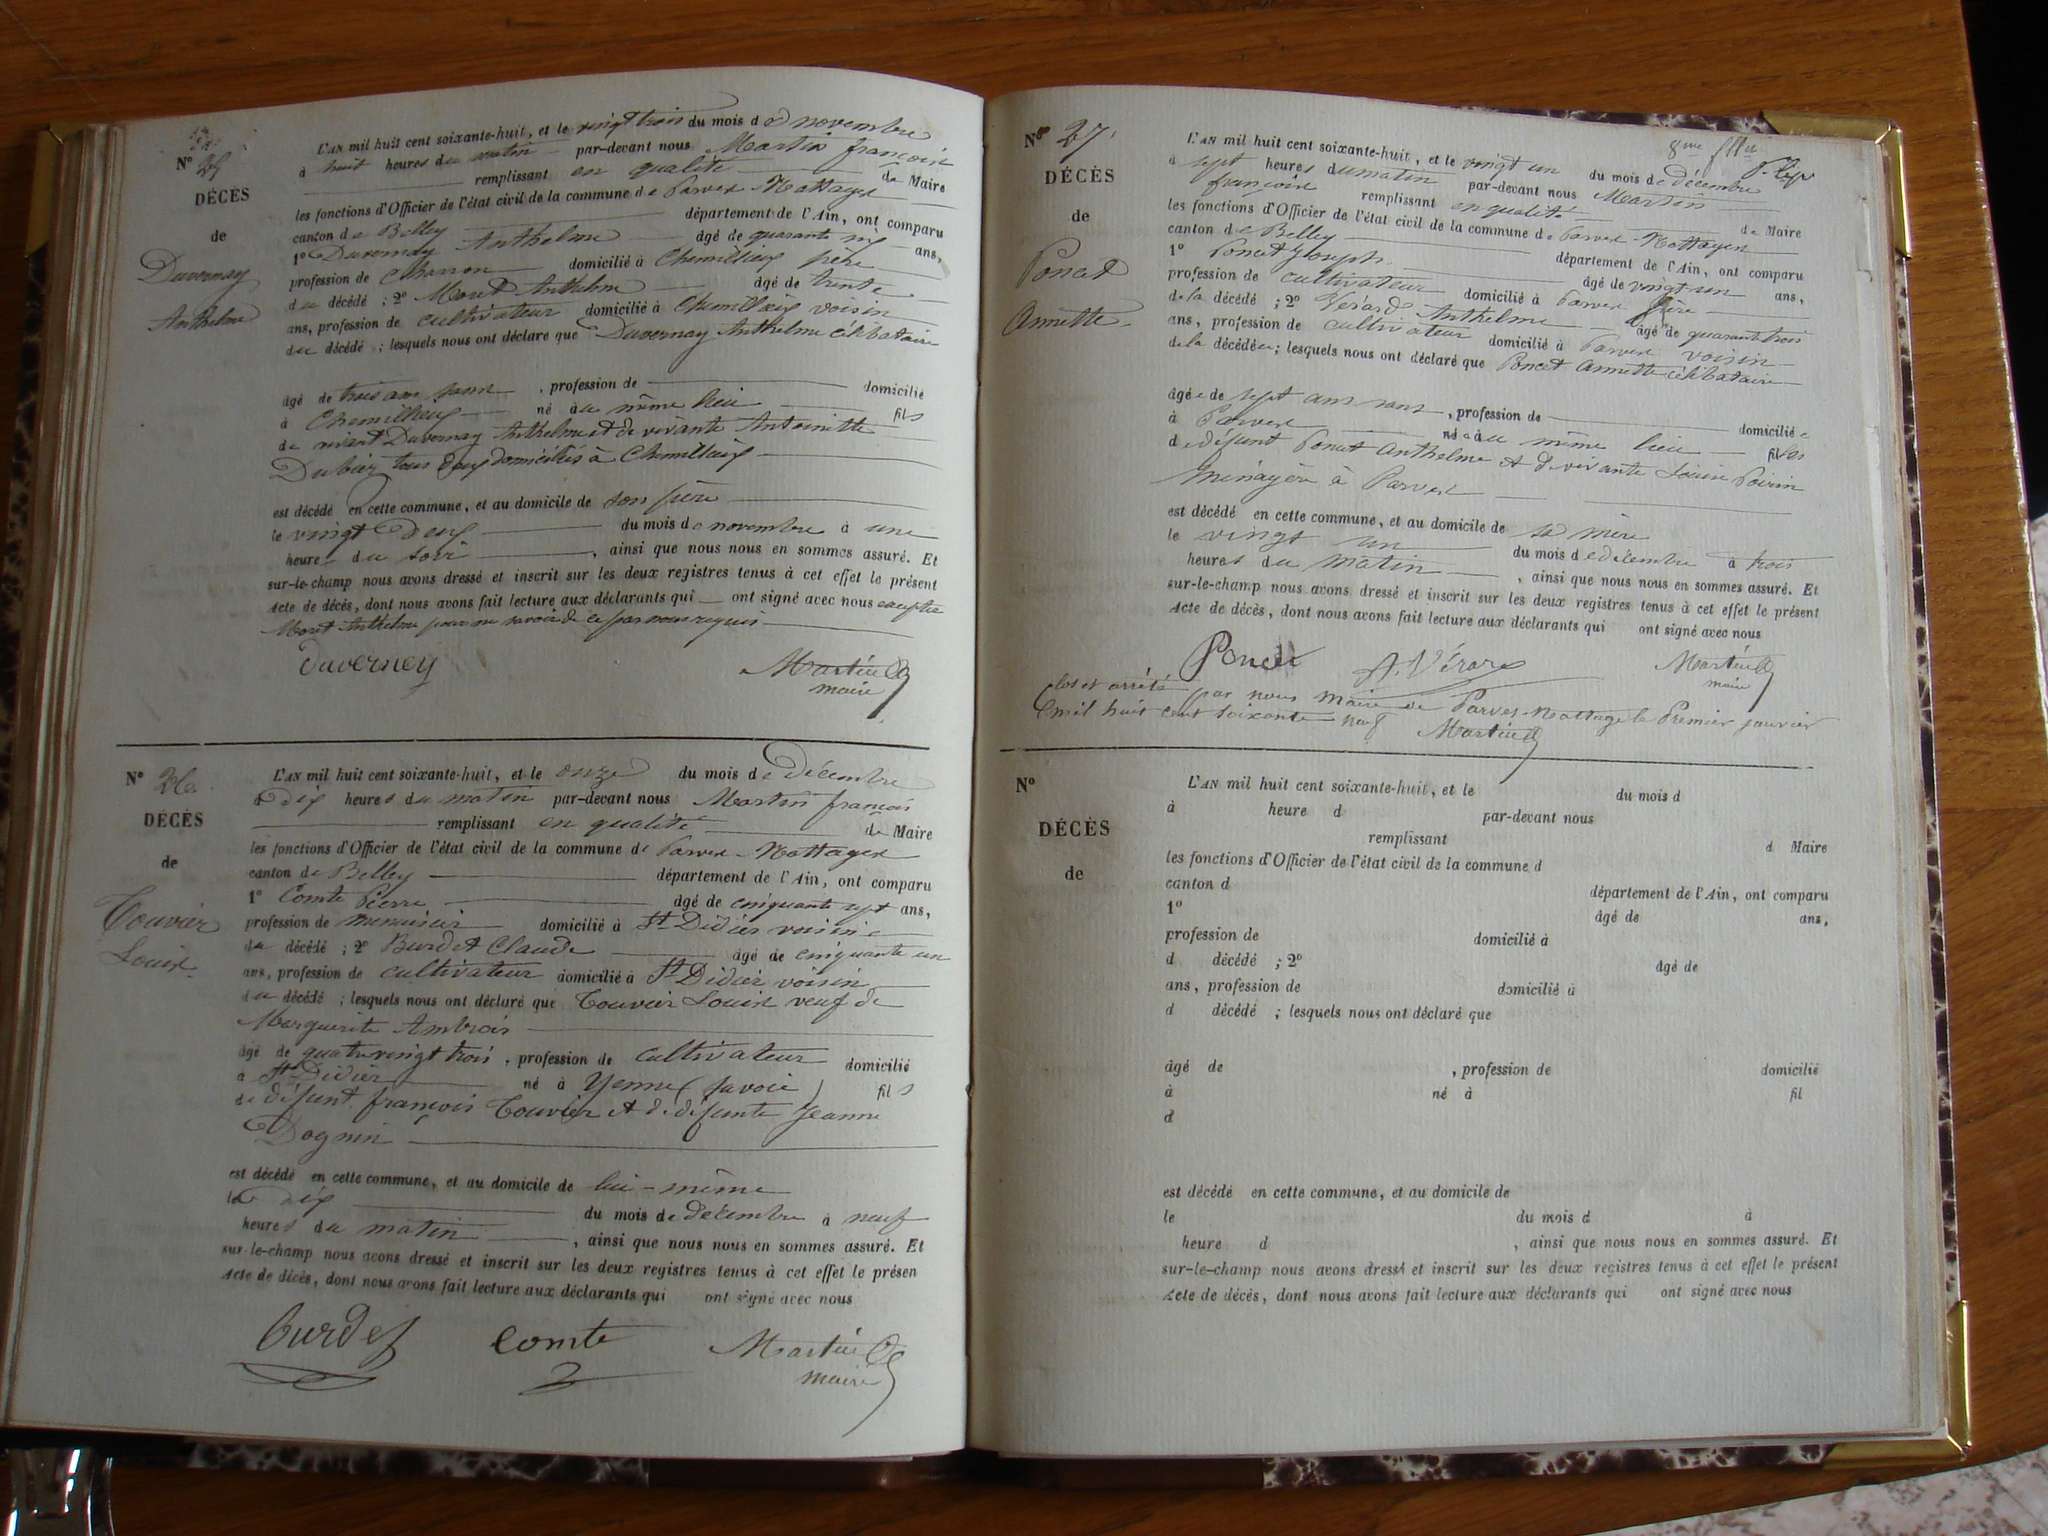 N° 25
DÉCÈS
de
Duvernay
Anthelme
L'AN mil huit cent soixante-huit, et le vingt trois du mois de novembre
à huit heures du matin par-devant nous Martin françois
remplissant en qualité de Maire
les fonctions d'Officier de l'état civil de la commune de Parves-Nattages
canton de Belley département de l'Ain, ont comparu
1° Duvernay Anthelme âgé de quarante six ans,
profession de charron domicilié à Chemillieu père
du décédé ; 2° Moret Anthelme âgé de trente
ans, profession de cultivateur domicilié à Chemillieu voisin
du décédé ; lesquels nous ont déclaré que Duvernay Anthelme célibataire
âgé de trois ans , profession de domicilié
à Chemillieu né au même lieu fils
de vivant Duvernay Anthelme et de vivante Antoinette
tous deux domiciliés à Chemillieu
est décédé en cette commune, et au domicile de son père
le vingt deux du mois de novembre à une
heure du soir , ainsi que nous nous en sommes assuré. Et
sur-le-champ nous avons dressé et inscrit sur les deux registres tenus à cet effet le présent
Acte de décès, dont nous avons fait lecture aux déclarants qui ont signé avec nous excepté
Moret Anthelme pour ne savoir de ce par nous requis
Duverney
Martin
maire
N° 26
DÉCÈS
de
Touvier
Louis
L'AN mil huit cent soixante-huit, et le onze du mois de décembre
à dix heures du matin par-devant nous Martin françois
remplissant en qualité de Maire
les fonctions d'Officier de l'état civil de la commune de Parves-Nattages
canton de Belley département de l'Ain, ont comparu
1° Comte Pierre âgé de cinquante sept ans,
profession de menuisier domicilié à St Didier voisin
du décédé ; 2° Burdet Claude âgé de cinquante un
ans, profession de cultivateur domicilié à St Didier voisin
du décédé ; lesquels nous ont déclaré que Touvier Louis veuf de
Marguerite Ambrois
âgé de quatrevingt trois , profession de cultivateur domicilié
à St Didier né à Yenne (savoie) fils
de défunt françois Touvier et de défunte Jeanne
Dognin
est décédé en cette commune, et au domicile de lui-même
le dix du mois de décembre à neuf
heures du matin , ainsi que nous nous en sommes assuré. Et
sur-le-champ nous avons dressé et inscrit sur les deux registres tenus à cet effet le présen
Acte de décès, dont nous avons fait lecture aux déclarants qui ont signé avec nous
Burdet comte Martin
maire
N° 27
DÉCÈS
de
Poncet
Annette
8me
L'AN mil huit cent soixante-huit, et le vingt un du mois de décembre
à sept heures du matin par-devant nous Martin
françois remplissant en qualité de Maire
les fonctions d'Officier de l'état civil de la commune de Parves-Nattages
canton de Belley département de l'Ain, ont comparu
1° Poncet Joseph âgé de vingt un ans,
profession de cultivateur domicilié à Parves frère
de la décédé ; 2° Vérard Anthelme âgé de quarante trois
ans, profession de cultivateur domicilié à Parves voisin
de la décédée ; lesquels nous ont déclaré que Poncet Annette célibataire
âgée de sept ans , profession de domiciliée
à Parves née au même lieu fille
de défunt Poncet Anthelme et de vivante Louise Poirin
Ménagère à Parves
est décédé en cette commune, et au domicile de sa mère
le vingt un du mois de décembre à trois
heures du matin , ainsi que nous nous en sommes assuré. Et
sur-le-champ nous avons dressé et inscrit sur les deux registres tenus à cet effet le présent
Acte de décès, dont nous avons fait lecture aux déclarants qui ont signé avec nous
Poncet A. Vérard Martin
maire
Clos et arrêté par nous Maire de Parves-Nattages le Premier janvier
mil huit cent soixante neuf Martin
N°
DÉCÈS
de
L'AN mil huit cent soixante-huit, et le du mois d
à heure d par-devant nous
remplissant d Maire
les fonctions d'Officier de l'état civil de la commune d
canton d département de l'Ain, ont comparu
1° âgé de ans,
profession de domicilié à
d décédé ; 2° âgé de
ans, profession de domicilié à
d décédé ; lesquels nous ont déclaré que
âgé de , profession de domicilié
à né à fil
d
est décédé en cette commune, et au domicile de
le du mois d à
heure d , ainsi que nous nous en sommes assuré. Et
sur-le-champ nous avons dressé et inscrit sur les deux registres tenus à cet effet le présent
Acte de décès, dont nous avons fait lecture aux déclarants qui ont signé avec nous